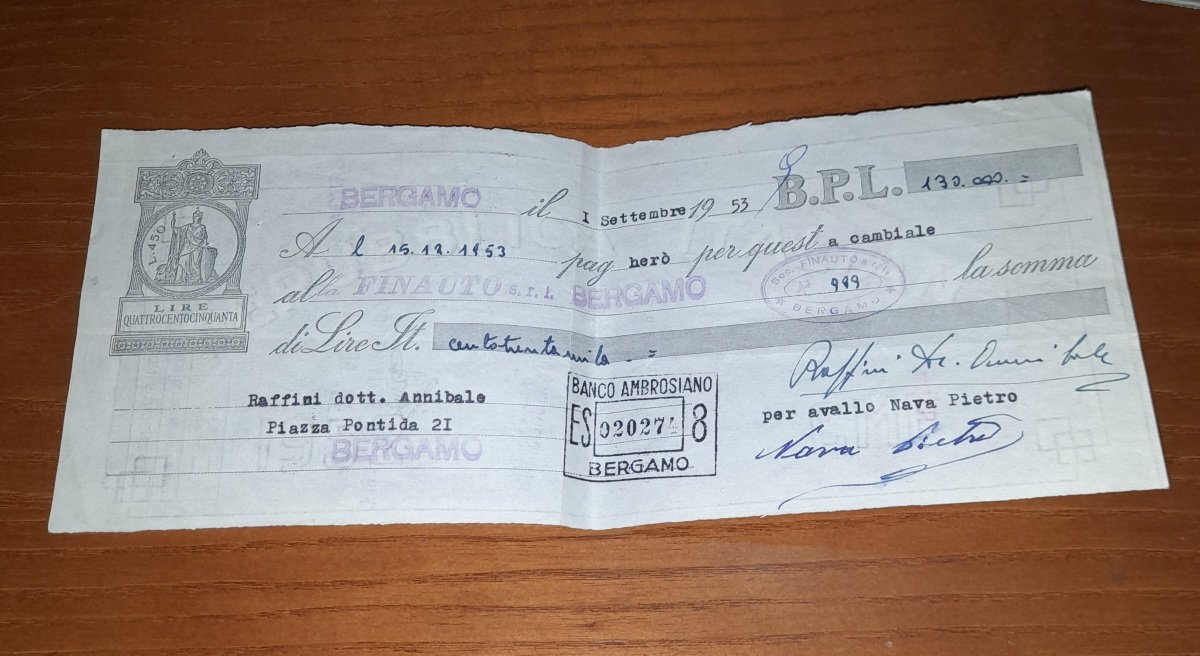 BERGAMO il I Settembre 19 53 B.P.L. 130.000.=
A l 15.12.1953 pag herò per quest a cambiale
alla FINAUTO S.r.l. BERGAMO la somma
Soc. FINAUTO a r.l.
989
BERGAMO
di Lire It. centotrentamila.=
L. 450
LIRE
QUATTROCENTOCINQUANTA
Raffini dott. Annibale
Piazza Pontida 2I
BERGAMO
BANCO AMBROSIANO
ES 020274 8
BERGAMO
Raffini Dr. Annibale
per avallo Nava Pietro
Nava Pietro